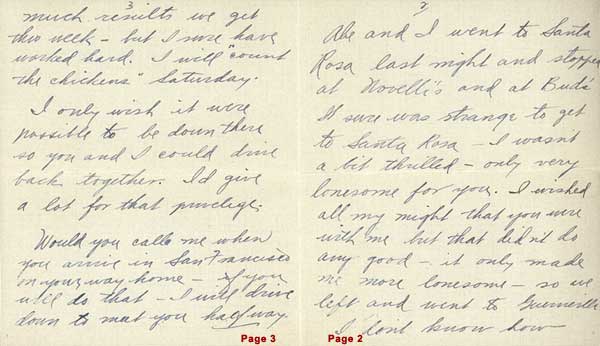 2
Abe and I went to Santa
Rosa last night and stopped
at Novelli's and at Bud's
It sure was strange to get
to Santa Rosa – I wasn't
a bit thrilled – only very
lonesome for you. I wished
all my might that you were
with me but that didn't do
any good – it only made
me more lonesome – so we
left and went to Guerneville
I dont know how
Page 2
3
much results we get
this week – but I sure have
worked hard. I will "count
the chickens" Saturday.
I only wish it were
possible to be down there
so you and I could drive
back together. I'd give
a lot for that privilege.
Would you call me when
you arrive in San Francisco
on your way home – If you
will do that – I will drive
down to meet you halfway.
Page 3